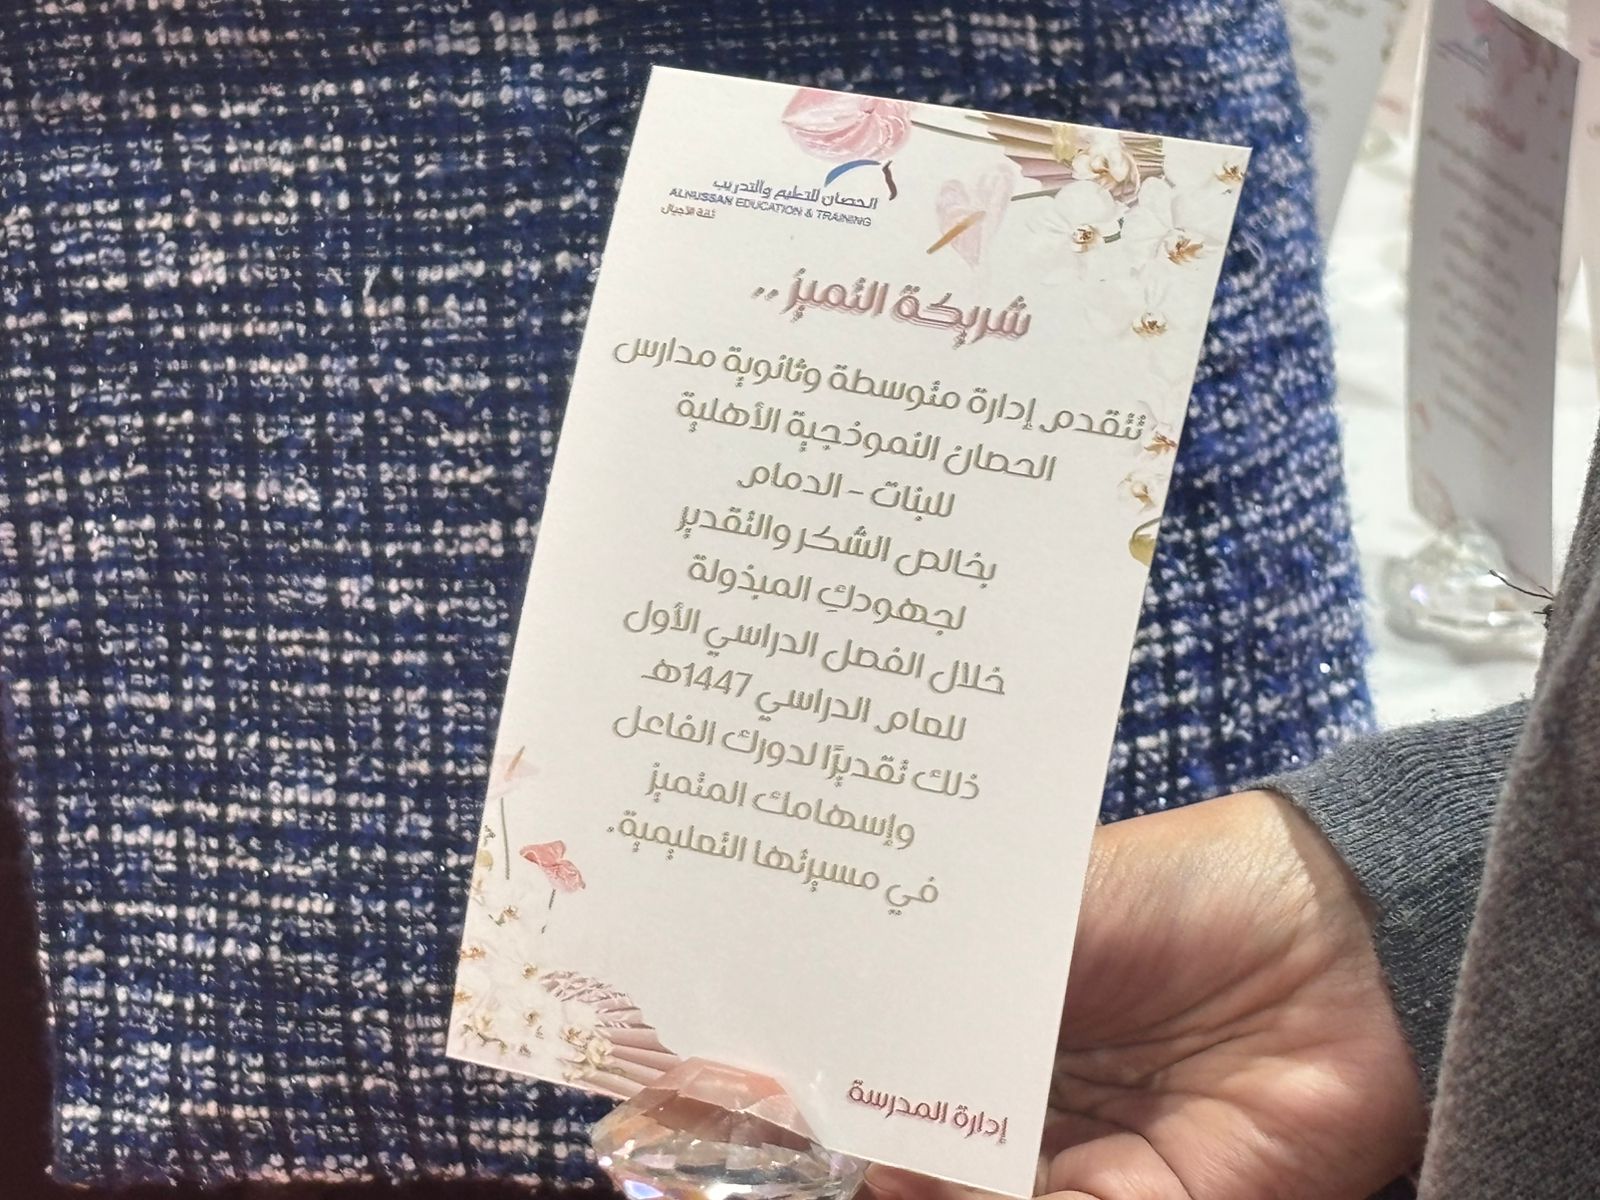 الحصان للتعليم والتدريب
ALHUSSAN EDUCATION & TRAINING
ثقة الأجيال
شريكة التميز ..
تتقدم إدارة متوسطة وثانوية مدارس
الحصان النموذجية الأهلية
للبنات - الدمام
بخالص الشكر والتقدير
لجهودكِ المبذولة
خلال الفصل الدراسي الأول
للعام الدراسي 1447هـ
ذلك تقديرًا لدورك الفاعل
وإسهامك المتميز
في مسيرتها التعليمية.
إدارة المدرسة